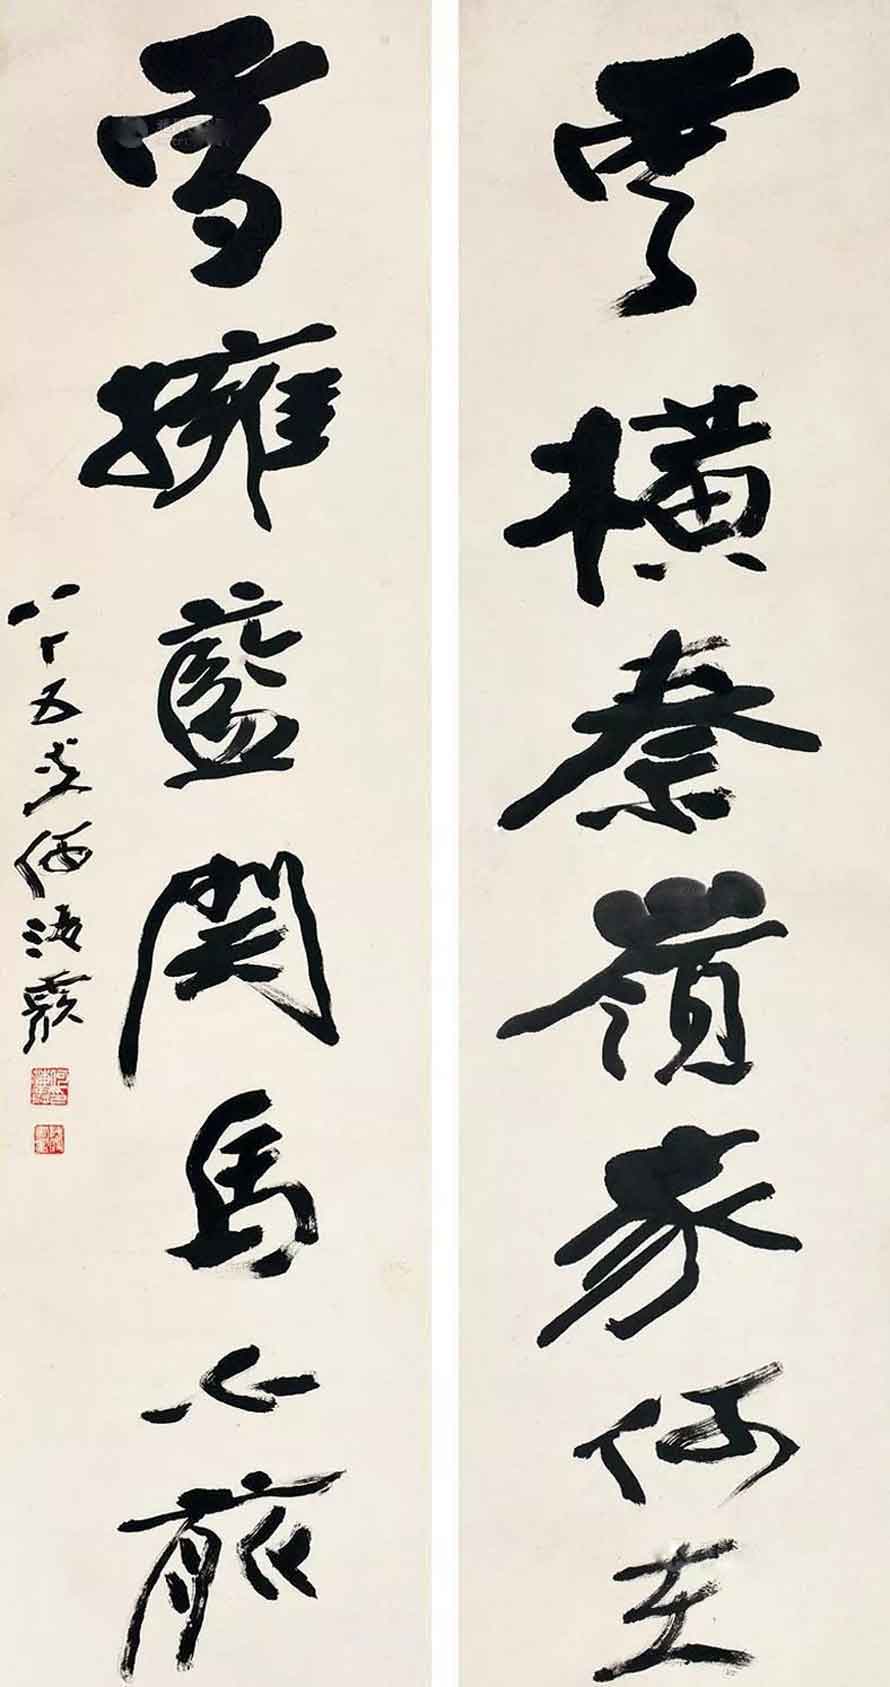 雲橫秦嶺家何在
雪擁藍關馬不前
八十五叟何海霞